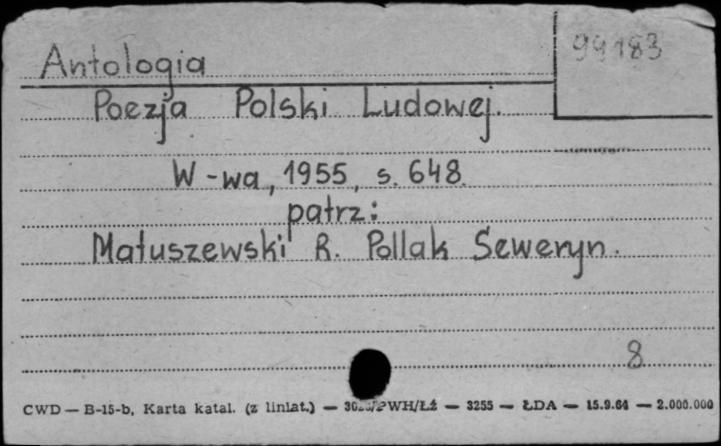 99183
Antologia
Poezja Polski Ludowej.
W-wa, 1955, s. 648.
patrz:
Matuszewski R. Pollak Seweryn.
8
CWD — B-15-b, Karta katal. (z liniat.) — WH/ŁŻ — 3255 — ŁDA — 15.9.64 — 2.000.000